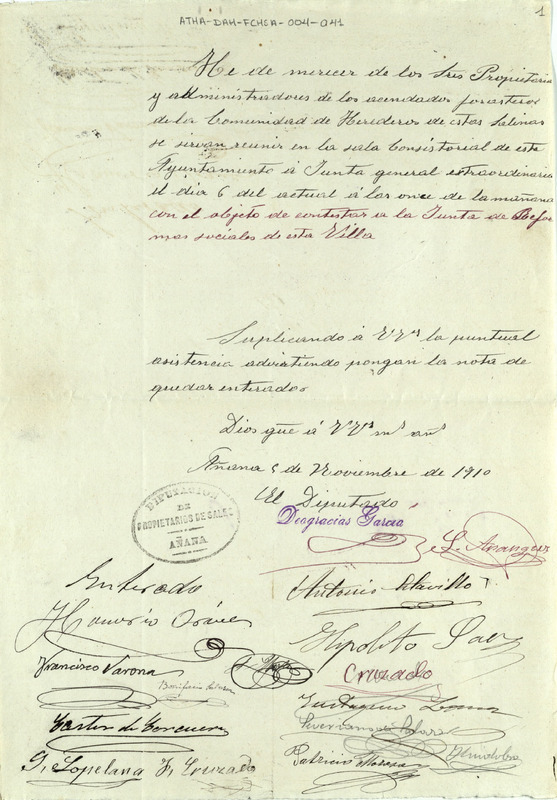 ATHA-DAH-FCHEA-004-041
1
He de merecer de los Sres Propietarios
y administradores de los acendados forasteros
de la Comunidad de Herederos de estas Salinas
se sirvan reunir en la sala Consistorial de este
Ayuntamiento á Junta general extraordinaria
el dia 6 del actual á las once de la mañana
con el objeto de contestar a la Junta de Refor
mas sociales de esta Villa
Suplicando á VVs la puntual
asistencia advirtiendo pongan la nota de
quedar enterados
Dios gue á VVs ms as
Añana 5 de Noviembre de 1910
El Diputado
Deogracias Garcia
DIPUTACION
DE
PROPIETARIOS DE SALAS
AÑANA
Enterado
Antonio
Honorio
Hipolito Saez
Francisco Varona
Cruzado
Bonifacio
Eustaquio
Castor de
Patricio
Lopelana F. Cruzado